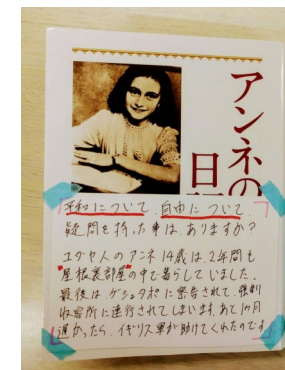 アンネの
日記
「平和について、自由について」
疑問を持った事は、ありますか?
ユダヤ人のアンネ14歳は、2年間も
"屋根裏部屋"の中で暮らしていました。
最後は、ゲシュタポに密告されて、強制
収容所に連行されてしまいます。あと1ヶ月
遅かったら、イギリス軍が助けてくれたのです